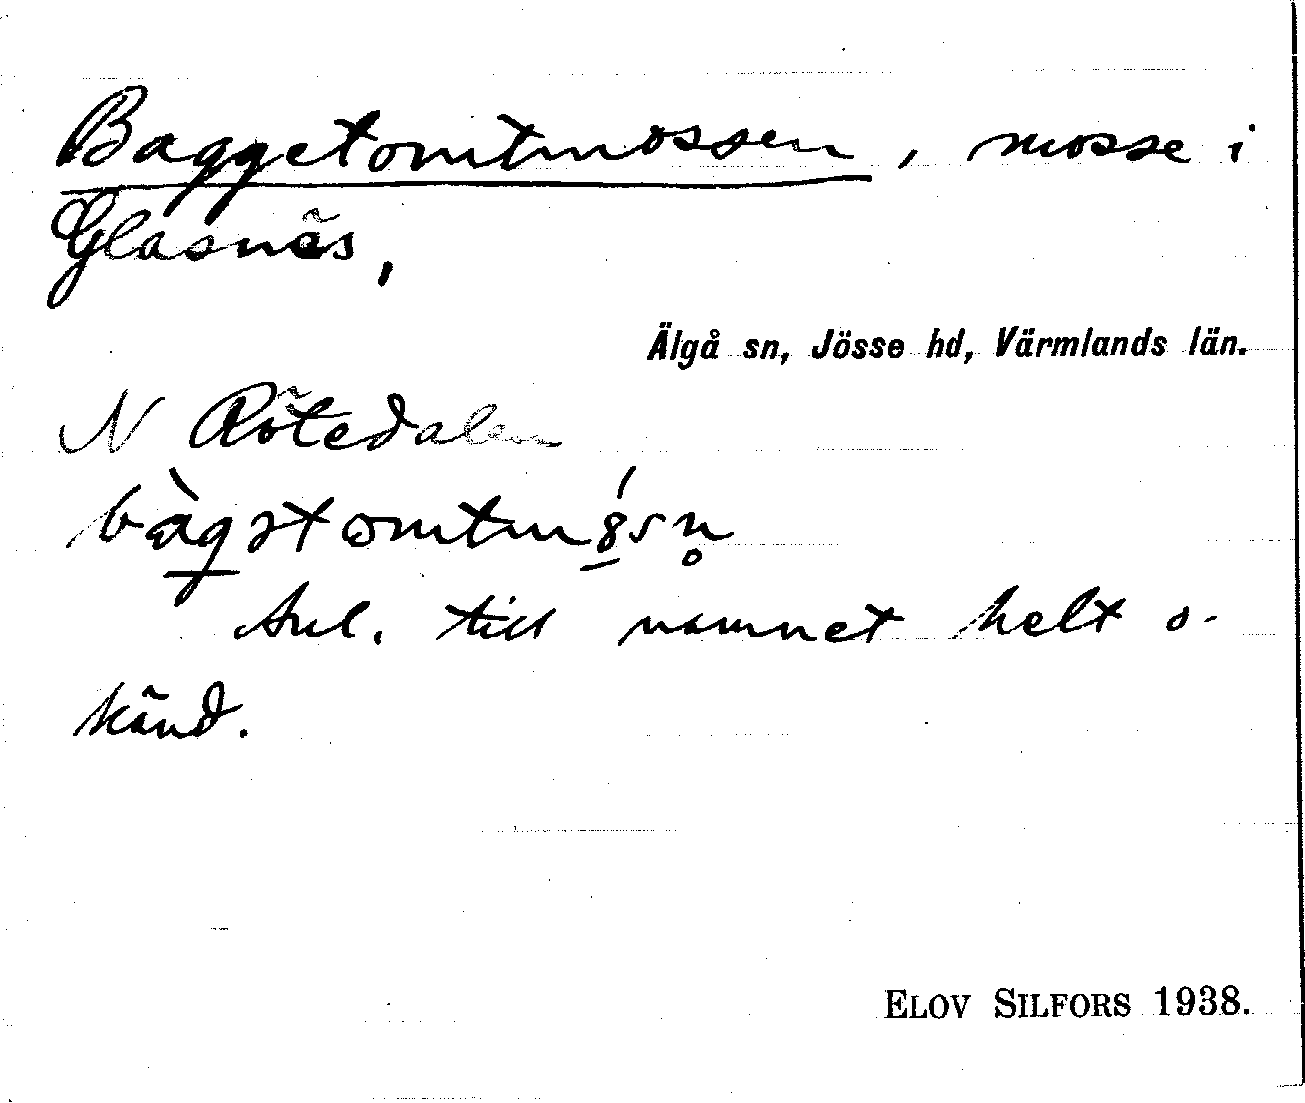 Baggetomtmossen, mosse i
Glasnäs,
Älgå sn, Jösse hd, Värmlands län.
N Rötedalen
Anl. till namnet helt o-
känd.
ELOV SILFORS 1938.